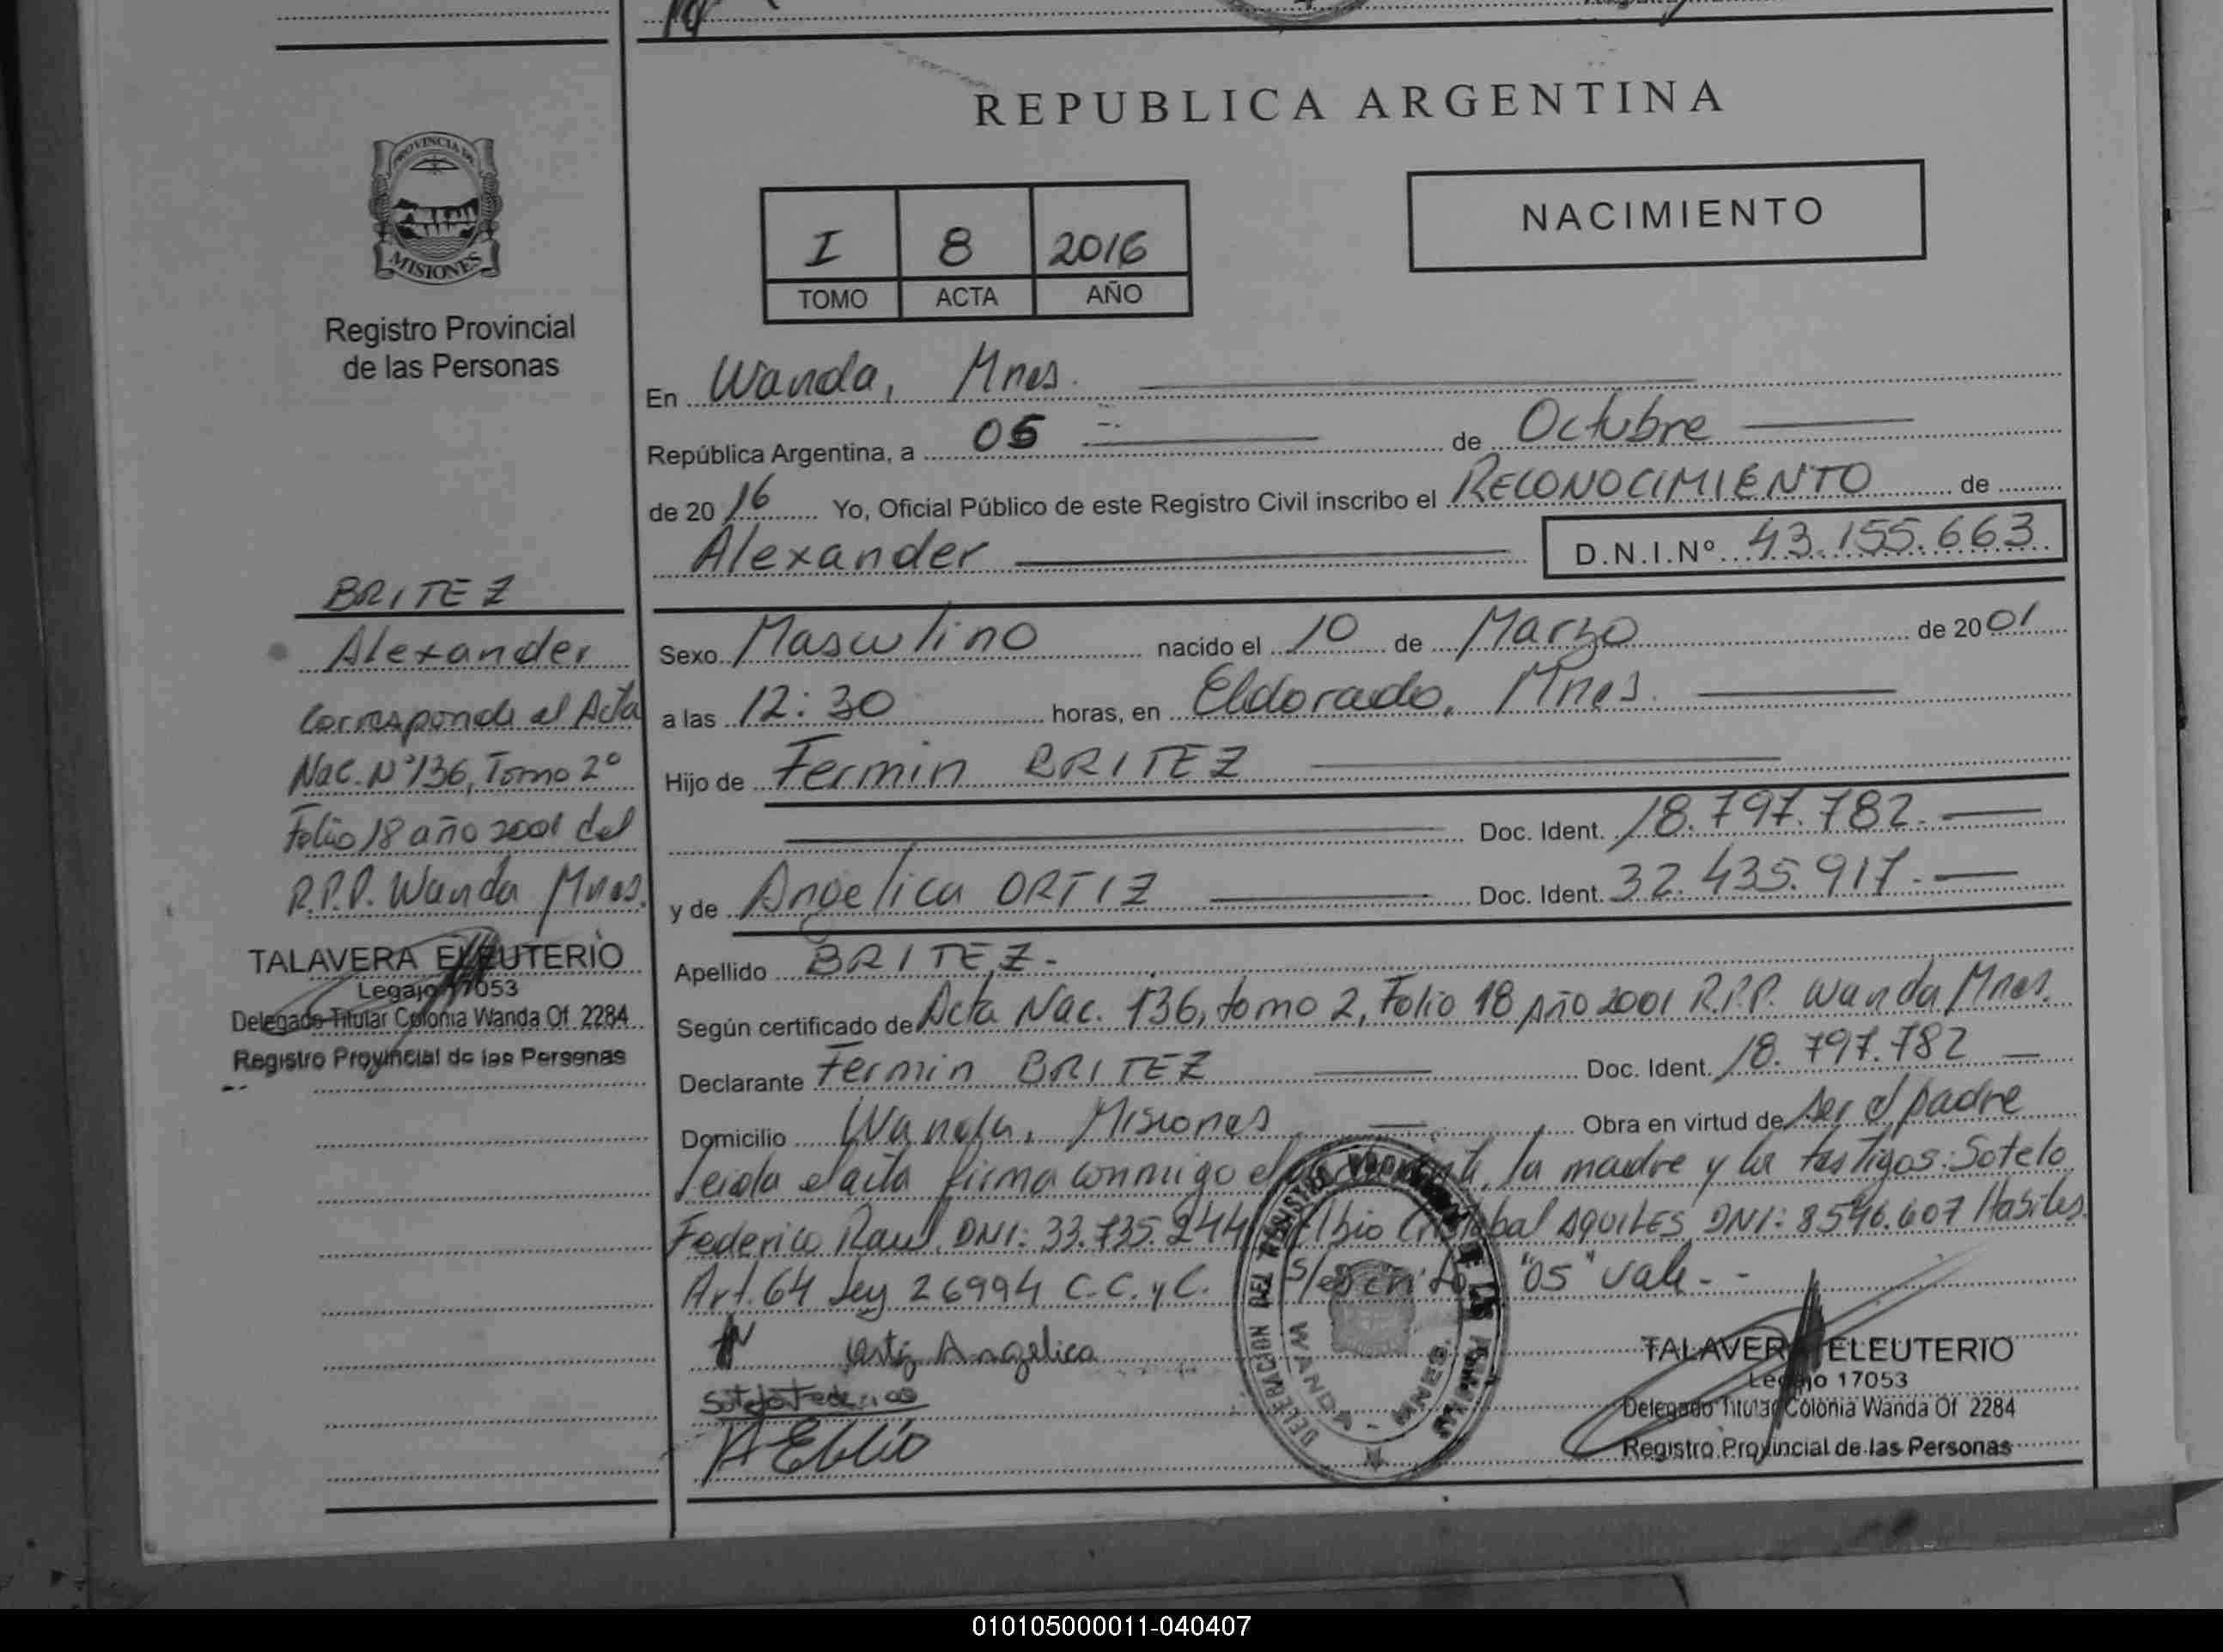 REPUBLICA ARGENTINA
PROVINCIA DE
MISIONES
Registro Provincial
de las Personas
I 8 2016
TOMO ACTA AÑO
NACIMIENTO
En Wanda, Mnes.
República Argentina, a 05 de Octubre
de 2016 Yo, Oficial Público de este Registro Civil inscribo el RECONOCIMIENTO de
Alexander D.N.I.Nº 43.155.663
BRITEZ
Alexander
Corresponde al Acta
Nac. Nº 136, Tomo 2º
Folio 18 año 2001 del
R.P.P. Wanda Mnes.
TALAVERA ELEUTERIO
Legajo 17053
Delegado Titular Colonia Wanda Of 2284
Registro Provincial de las Personas
Sexo Masculino nacido el 10 de Marzo de 2001
a las 12:30 horas, en Eldorado, Mnes.
Hijo de Fermin BRITEZ
Doc. Ident. 18.797.782.
y de Angelica ORTIZ Doc. Ident. 32.435.917.
Apellido BRITEZ.-
Según certificado de Acta Nac. 136, tomo 2, Folio 18 Año 2001 R.P.P. Wanda Mnes.
Declarante Fermin BRITEZ Doc. Ident. 18.797.782
Domicilio Wanda, Misiones Obra en virtud de ser el padre
leida el acta firma conmigo el la madre y los testigos: Sotelo
Federico Raul, DNI: 33.735.244 Elbio Cristobal AQUILES, DNI: 8546.607 Habiles.
Art. 64 Ley 26994 C.C. y C. S/escrito "05" vale.-
Ortiz Angelica
Sotelo Federico
A Elbio
DELEGACION DEL REGISTRO PROVINCIAL DE LAS PERSONAS
WANDA - MNES.
TALAVERA ELEUTERIO
Legajo 17053
Delegado Titular Colonia Wanda Of 2284
Registro Provincial de las Personas
010105000011-040407